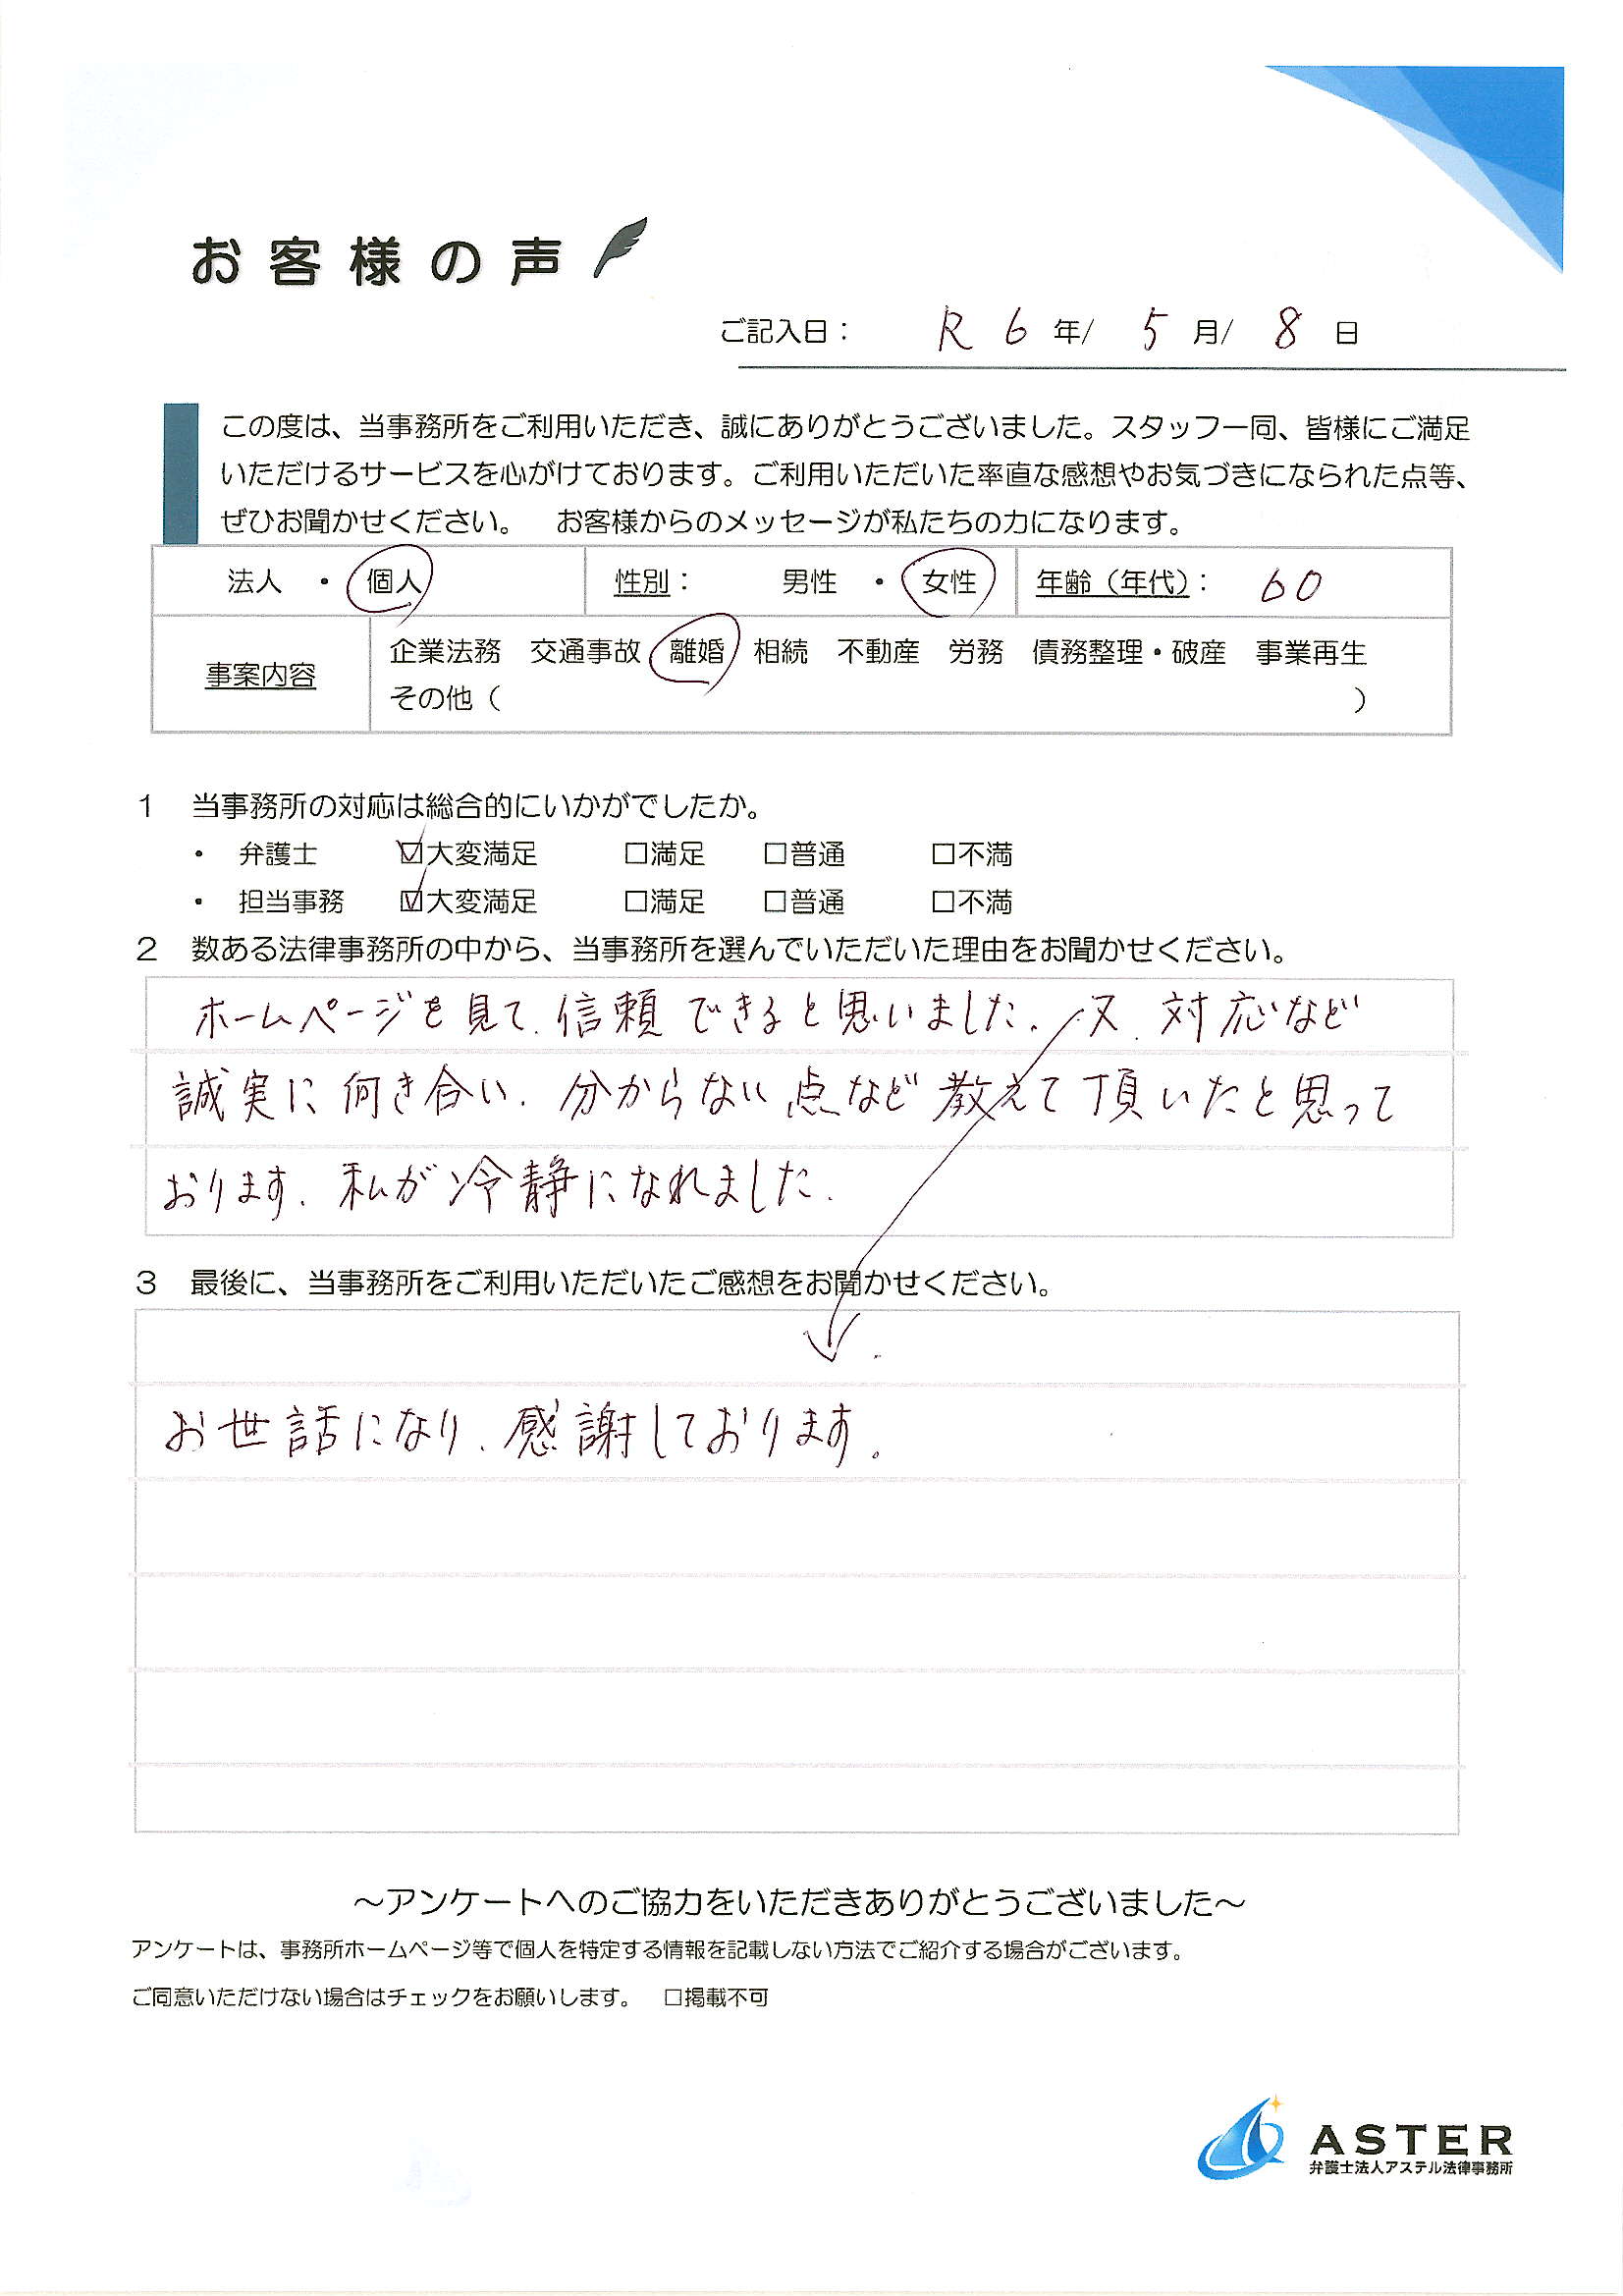 お客様の声
ご記入日： R 6 年/ 5 月/ 8 日
この度は、当事務所をご利用いただき、誠にありがとうございました。スタッフ一同、皆様にご満足
いただけるサービスを心がけております。ご利用いただいた率直な感想やお気づきになられた点等、
ぜひお聞かせください。 お客様からのメッセージが私たちの力になります。
法人 ・ 個人 性別： 男性 ・ 女性 年齢（年代）： 60
事案内容 企業法務 交通事故 離婚 相続 不動産 労務 債務整理・破産 事業再生
その他（ ）
1 当事務所の対応は総合的にいかがでしたか。
・ 弁護士 ☑大変満足 □満足 □普通 □不満
・ 担当事務 ☑大変満足 □満足 □普通 □不満
2 数ある法律事務所の中から、当事務所を選んでいただいた理由をお聞かせください。
ホームページを見て、信頼できると思いました。又、対応など
誠実に向き合い、分からない点など教えて頂いたと思って
おります。私が冷静になれました。
3 最後に、当事務所をご利用いただいたご感想をお聞かせください。
お世話になり、感謝しております。
～アンケートへのご協力をいただきありがとうございました～
アンケートは、事務所ホームページ等で個人を特定する情報を記載しない方法でご紹介する場合がございます。
ご同意いただけない場合はチェックをお願いします。 □掲載不可
ASTER
弁護士法人アステル法律事務所